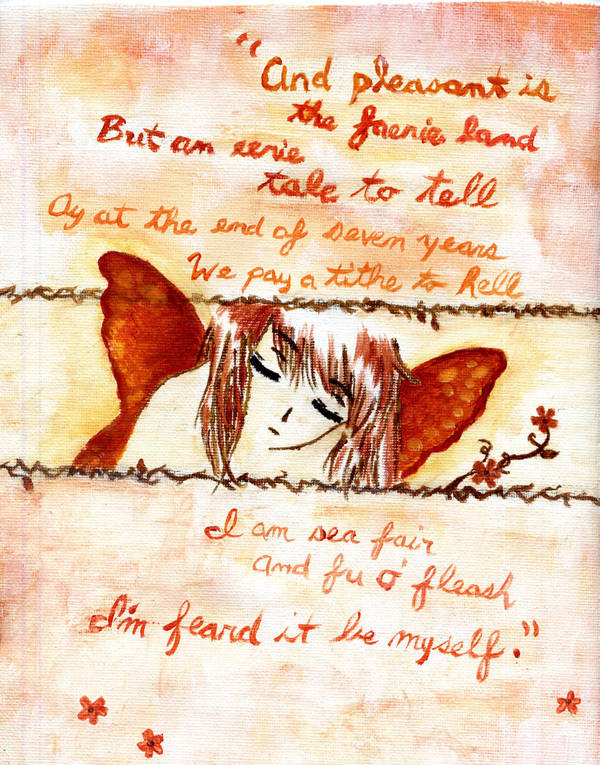 "And pleasant is
the faerie land
But an eerie
tale to tell
Ay at the end of seven years
We pay a tithe to hell
I am sea fair
and fu o' fleash
I'm feard it be myself."